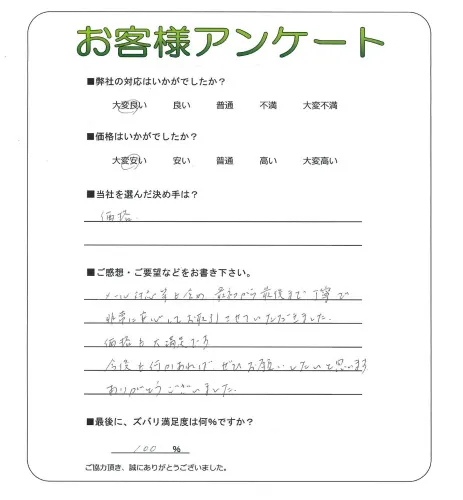 お客様アンケート
■弊社の対応はいかがでしたか？
大変良い 良い 普通 不満 大変不満
■価格はいかがでしたか？
大変安い 安い 普通 高い 大変高い
■当社を選んだ決め手は？
価格
■ご感想・ご要望などをお書き下さい。
メール対応等も含め 最初から最後まで丁寧で
非常に安心してお取引させていただきました。
価格も大満足です
今後も何かあれば、ぜひお願いしたいと思います
ありがとうございました。
■最後に、ズバリ満足度は何%ですか？
100 %
ご協力頂き、誠にありがとうございました。